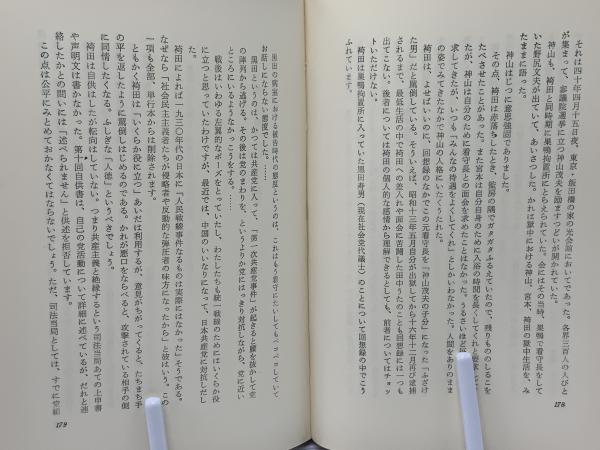 それは四十年四月十五日夜、東京・飯田橋の家の光会館においてであった。各界三百人の人びと
が集まって、参議院選挙に立つ神山茂夫を励ますつどいが開かれていた。
神山も、袴田と同時期に巣鴨拘置所にとらえられていた。会にはその当時、巣鴨で看守長をして
いた野尻丈夫が出ていて、あいさつした。かれは獄中における神山、宮本、袴田の獄中生活を、み
たままに語った。
神山はじつに意思強固でありました。
その点、袴田は赤落ちしたとき、監房の隅でガタガタふるえていたので、残りもののしるこを
たべさせたことがあった。また宮本は自分自身のために入浴の時間を長くしてくれと要求し
たが、神山は自分のために看守長との面会を求めたことはなかった。うるさいほど
求してきたが、いつも「みんなの待遇をよくしてくれ」としかいわなかった。人間をありのまま
の姿でみてきたなかで神山の人格にいたくうたれた。
袴田は、よせばいいのに、「回想録のなかでこの元看守長を『神山茂夫の子分』になった「ふざけ
た男」だと罵倒している。そういえば、昭和十三年五月自分が出獄してから十六年十二月再び逮捕
されるまで、最低生活の中で袴田への差入れや面会に苦闘した田中うたのことも回想録には一つも
出てこない。後者については袴田の個人的な感情から理解できるとしても、前者についてはチョッ
トいただけない。
袴田は巣鴨拘置所に入っていた黒田寿男（現在社会党代議士）のことについて回想録の中でこう
ふれています。
178
黒田の病室における被告時代の態度というのは、これはもう看守にたいしてもペコペコしていて
お話しにならない態度でした。
黒田というのは、かつては共産党に入って、「第一次共産党事件」が起きると腰を抜かして党
の陣列から逃げる。その後は、党のまわりを、というよりか党にはっきり対抗しながら、党に近い
ところにいるようなかっこうをする。……
戦後はいわゆる左翼的なポーズをとっていたし、わたしたちも統一戦線のためにはいくらか役
に立つと思っていたわけですが、最近では、中国のいいなりになって、日本共産党に対抗しだし
た。
袴田によれば一九三〇年代の日本に「人民戦線事件なるものは実際にはなかった」そうである。
なぜなら「社会民主主義者たちが侵略者や反動的な弾圧者の味方になったから」と彼はいう。この
一項も全部、単行本からは削除されます。
ともかく袴田は「いくらか役に立つ」あいだは利用するが、意見がちがってくると、たちまち手
の平を返したように罵倒しはじめるのである。かれが悪口をならべると、攻撃されている相手の側
に同情したくなる。ふしぎな「人徳」というべきでしょう。
袴田は自供はしたが転向はしていない。つまり共産主義と絶縁するという司法当局あての上申書
や声明文は書かなかった。第十回自供は、自己の党活動について詳細に述べているが、だれと連
絡したかとの問いには「述べられません」と供述を拒否しています。
この点は公平にみとめておかなくてはならないでしょう。ただ、司法当局としては、すでに党組
179